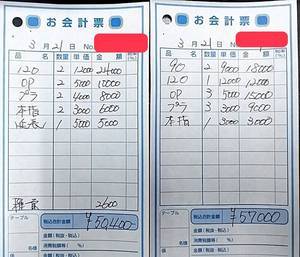 お会計票
3月21日 No.
品名 数量 単価 金額
120 2 12000 24000
OP 2 5000 10000
プラ 2 4000 8000
本指 2 3000 6000
延長 1 5000 5000
2600
テーブル 税込合計金額 ¥50,400
名様 金額(税抜・税込)
消費税額等(%)
金額(税抜・税込)
お会計票
3月21日 No.
品名 数量 単価 金額
90 2 9000 18000
120 1 12000 12000
OP 3 5000 15000
プラ 3 3000 9000
本指 1 3000 3000
テーブル 税込合計金額 ¥57000
名様 金額(税抜・税込)
消費税額等(%)
金額(税抜・税込)